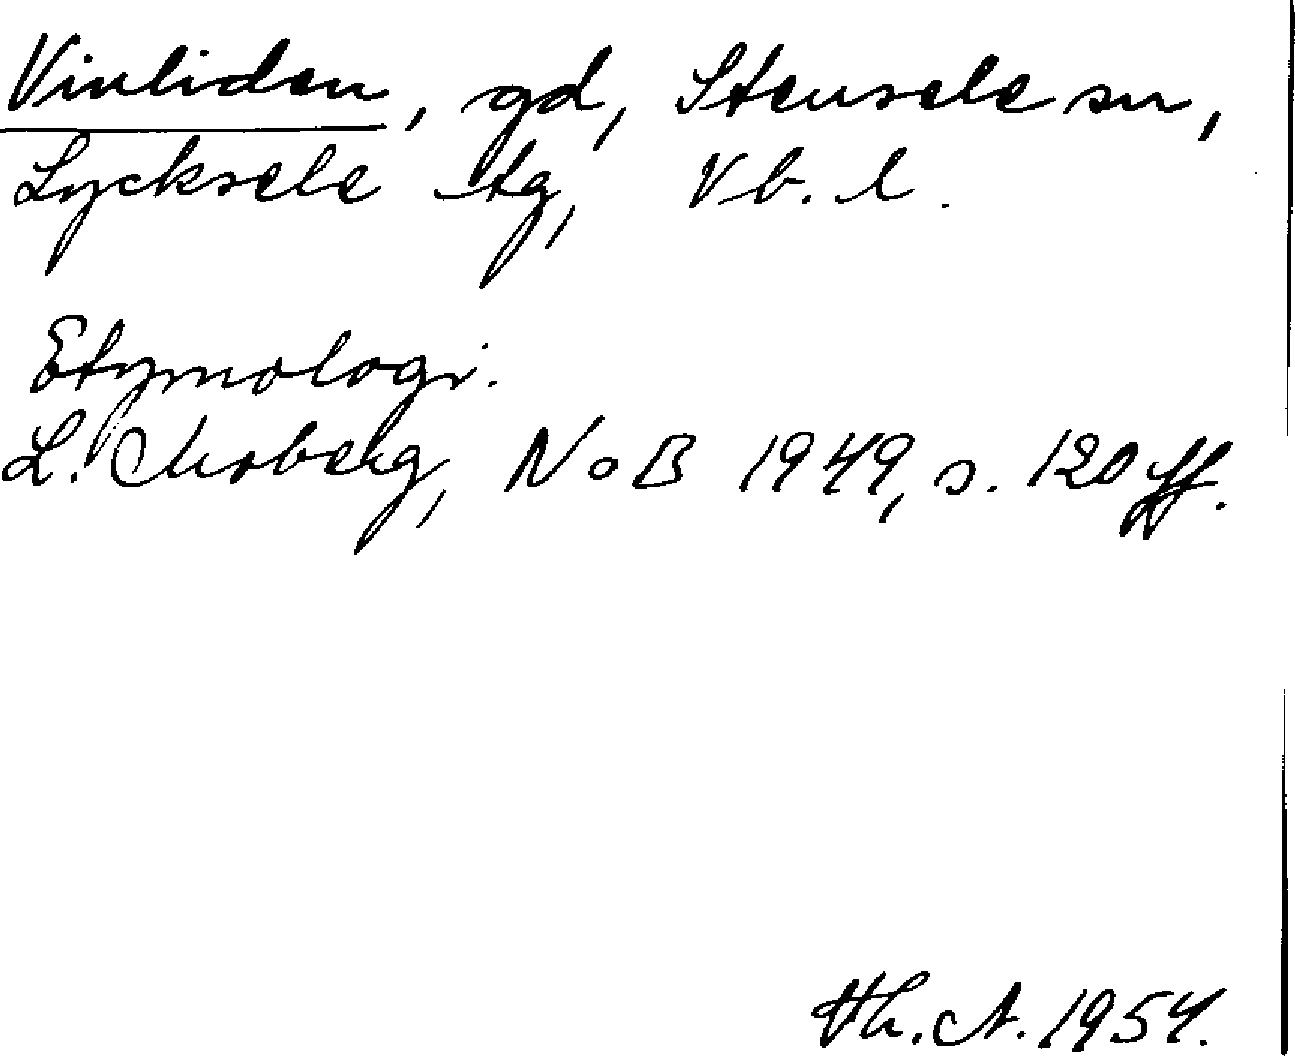 Vinliden, gd, Stensele sn,
Lycksele tg, Vb. l.
Etymologi.
L. Moberg, NoB 1949, s. 120 ff.
Th. A. 1954.